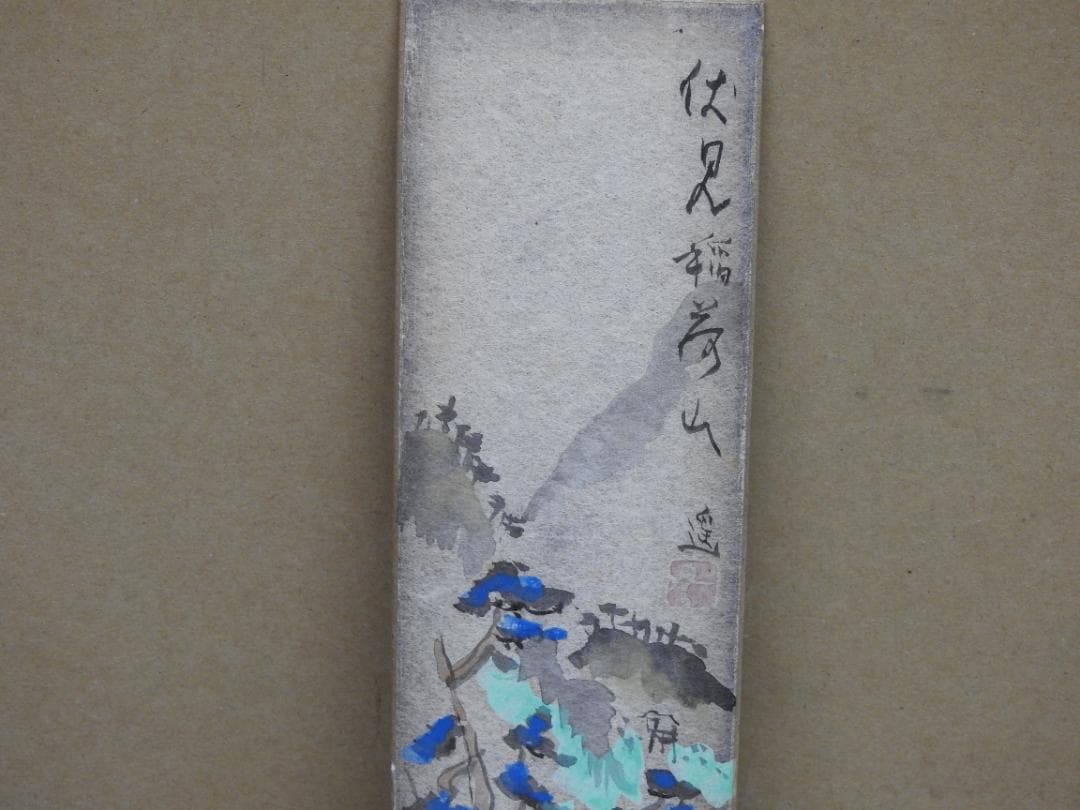 伏見稲荷山
遥